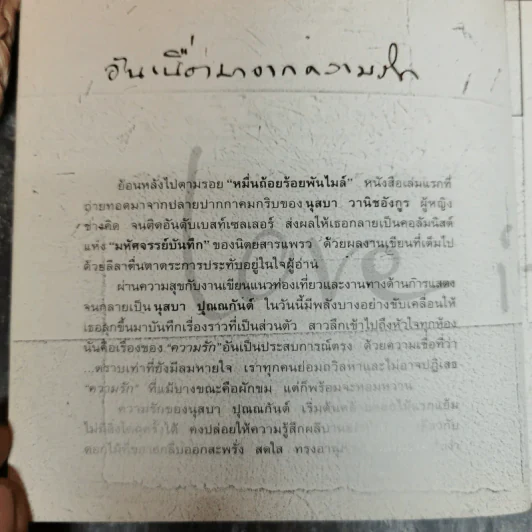 อันเนื่องมาจากความรัก
Love
ย้อนหลังไปตามรอย “หมื่นถ้อยร้อยพันไมล์” หนังสือเล่มแรกที่
ถ่ายทอดมาจากปลายปากกาคมกริบของ นุสบา วานิชอังกูร ผู้หญิง
ช่างคิด จนติดอันดับเบสท์เซลเลอร์ ส่งผลให้เธอกลายเป็นคอลัมนิสต์
แห่ง “มหัศจรรย์บันทึก” ของนิตยสารแพรว ด้วยผลงานเขียนที่เต็มไป
ด้วยลีลาตื่นตาตระการประทับอยู่ในใจผู้อ่าน
ผ่านความสุขกับงานเขียนแนวท่องเที่ยวและงานทางด้านการแสดง
จนกลายเป็น นุสบา ปุณณกันต์ ในวันนี้มีพลังบางอย่างขับเคลื่อนให้
เธอลุกขึ้นมาบันทึกเรื่องราวที่เป็นส่วนตัว สาวลึกเข้าไปถึงหัวใจทุกห้อง
นั่นคือเรื่องของ “ความรัก” อันเป็นประสบการณ์ตรง ด้วยความเชื่อที่ว่า
...ตราบเท่าที่ยังมีลมหายใจ เราทุกคนย่อมถวิลหาและไม่อาจปฏิเสธ
“ความรัก” ที่แม้บางขณะคือผักขม แต่ก็พร้อมจะหอมหวาน
ความรักของนุสบา ปุณณกันต์ เริ่มต้น
คงปล่อยให้ความรู้สึกผลิบาน
ออกสะพรั่ง สดใส